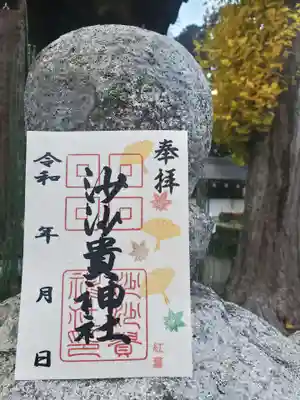 奉拝
沙沙貴神社
令和 年 月 日
紅葉